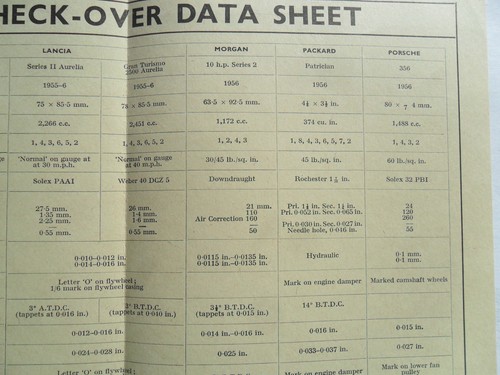 HECK-OVER DATA SHEET
LANCIA MORGAN PACKARD PORSCHE
Series II Aurelia Gran Turismo 2500 Aurelia 10 h.p. Series 2 Patrician 356
1955–6 1955–6 1956 1956 1956
75 × 85·5 mm. 78 × 85·5 mm. 63·5 × 92·5 mm. 80 × 7 4 mm.
2,266 c.c. 2,451 c.c. 1,172 c.c. 374 cu. in. 1,488 c.c.
1, 4, 3, 6, 5, 2 1, 4, 3, 6, 5, 2 1, 2, 4, 3 1, 8, 4, 3, 6, 5, 7, 2 1, 4, 3, 2
'Normal' on gauge at 'Normal' on gauge 30/45 lb./sq. in. 45 lb./sq. in. 60 lb./sq. in.
at 30 m.p.h. at 40 m.p.h.
Solex PAAI Weber 40 DCZ 5 Downdraught Rochester Solex 32 PBI
27·5 mm. 26 mm. 21 mm. Pri. in. Sec. in. 24
1·35 mm. 1·4 mm. 110 Pri. 0·052 in. Sec. 0·065 in. 120
2·25 mm. 1·6 mm. Air Correction 160 260
— — — Pri. 0·030 in. Sec. 0·027 in. —
0·55 mm. 0·55 mm. 50 Needle hole, 0·016 in. 55
0·010–0·012 in. 0·0115 in.–0·0135 in. Hydraulic 0·1 mm.
0·014–0·016 in. 0·0115 in.–0·0135 in. 0·1 mm.
Letter 'O' on flywheel; Mark on engine damper Marked camshaft wheels
1/6 mark on flywheel casing
3° A.T.D.C. 3° B.T.D.C. B.T.D.C. 14° B.T.D.C.
(tappets at 0·016 in.) (tappets at 0·040 in.) (tappets at 0·015 in.)
0·012–0·016 in. 0·014 in.–0·016 in. 0·016 in. 0·015 in.
0·024–0·028 in. 0·025 in. 0·033–0·037 in. 0·027 in.
Letter 'O' on flywheel; Mark on engine damper Mark on lower fan
pulley